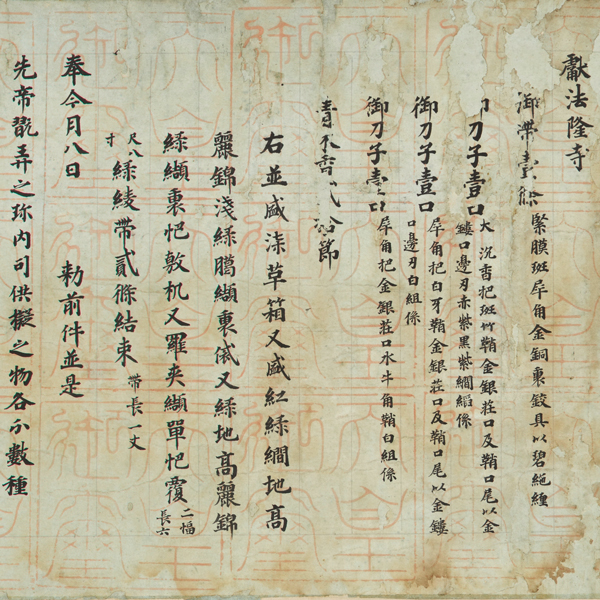 獻法隆寺
御帶壹條 緊膜斑犀角金銅裏鉸具以碧絁纏
刀子壹口 大沉香把斑竹鞘金銀莊口及鞘口尾以金
鏤口邊刃赤紫黑紫繝絛
御刀子壹口 犀角把白牙鞘金銀莊口及鞘口尾以金鏤
口邊刃白組絛
御刀子壹口 犀角把金銀莊口水牛角鞘白組絛
青木香貳拾節
右並盛漆草箱又盛紅綠繝地高
麗錦淺綠﨟纈裏帒又綠地高麗錦
綠纈裏帊敷机又羅夾纈單帊覆 二幅
長六
尺八
寸 綠綾帶貳條結束 帶長一丈
奉今月八日 勅前件並是
先帝翫弄之珎內司供擬之物各分數種